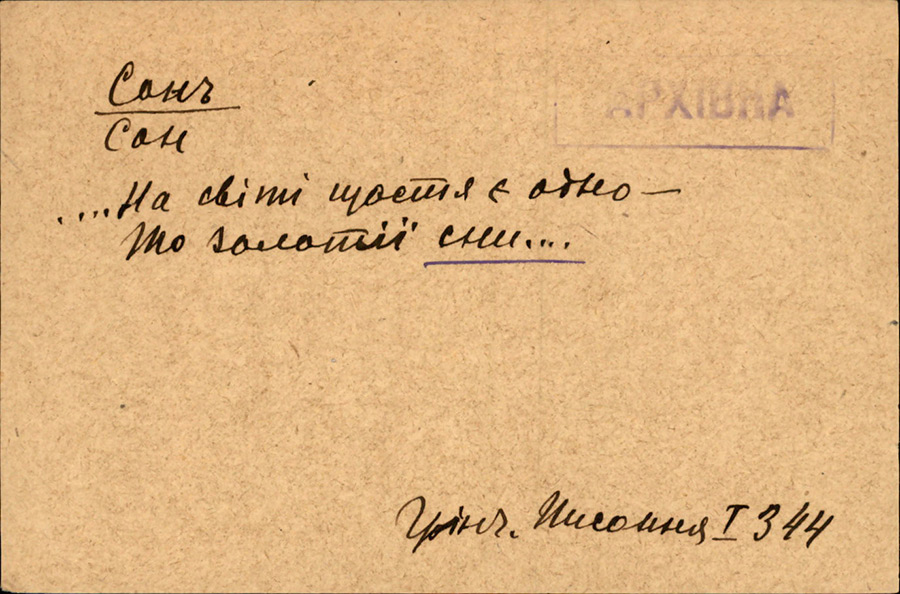 Сонъ
Сон
....На світі щастя є одно —
То золотії сни....
Грінч. Писання I 344
АРХІВНА